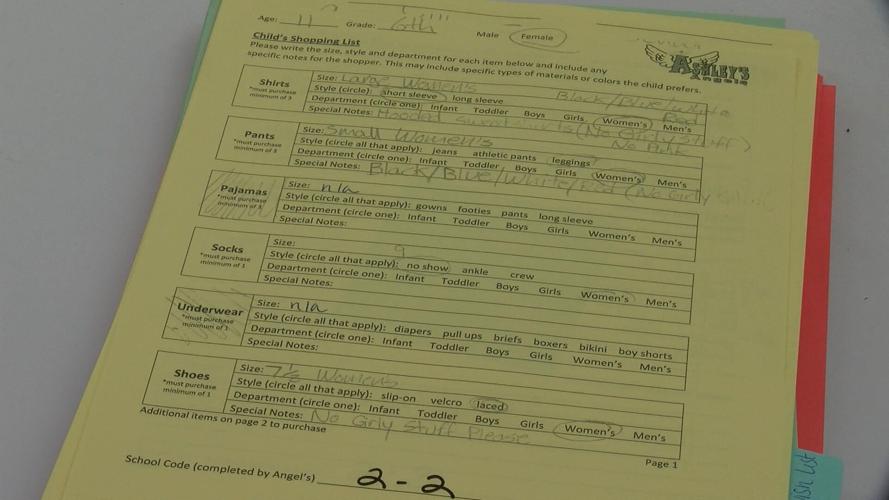 Age: 11 Grade: 6th Male Female
ASHLEY'S
Angels
Child's Shopping List
Please write the size, style and department for each item below and include any
specific notes for the shopper. This may include specific types of materials or colors the child prefers.
Shirts
*must purchase
minimum of 3
Size: Large Women's
Style (circle): short sleeve long sleeve Black/Blue/White
Red
Department (circle one): Infant Toddler Boys Girls Women's Men's
Special Notes: Hooded sweatshirts (No Girly Stuff)
No Pink
Pants
*must purchase
minimum of 3
Size: Small Women's
Style (circle all that apply): jeans athletic pants leggings
Department (circle one): Infant Toddler Boys Girls Women's Men's
Special Notes: Black/Blue/White/Red (No Girly
Pajamas
*must purchase
minimum of
Size: n/a
Style (circle all that apply): gowns footies pants long sleeve
Department (circle one): Infant Toddler Boys Girls Women's Men's
Special Notes:
Socks
*must purchase
minimum of 1
Size: 9
Style (circle all that apply): no show ankle crew
Department (circle one): Infant Toddler Boys Girls Women's Men's
Special Notes:
Underwear
*must purchase
minimum of 1
Size: n/a
Style (circle all that apply): diapers pull ups briefs boxers bikini boy shorts
Department (circle one): Infant Toddler Boys Girls Women's Men's
Special Notes:
Shoes
*must purchase
minimum of 1
Size: 7½ Women's
Style (circle all that apply): slip-on velcro laced
Department (circle one): Infant Toddler Boys Girls Women's Men's
Special Notes: No Girly Stuff Please
Additional items on page 2 to purchase
Page 1
School Code (completed by Angel's) 2-2
List